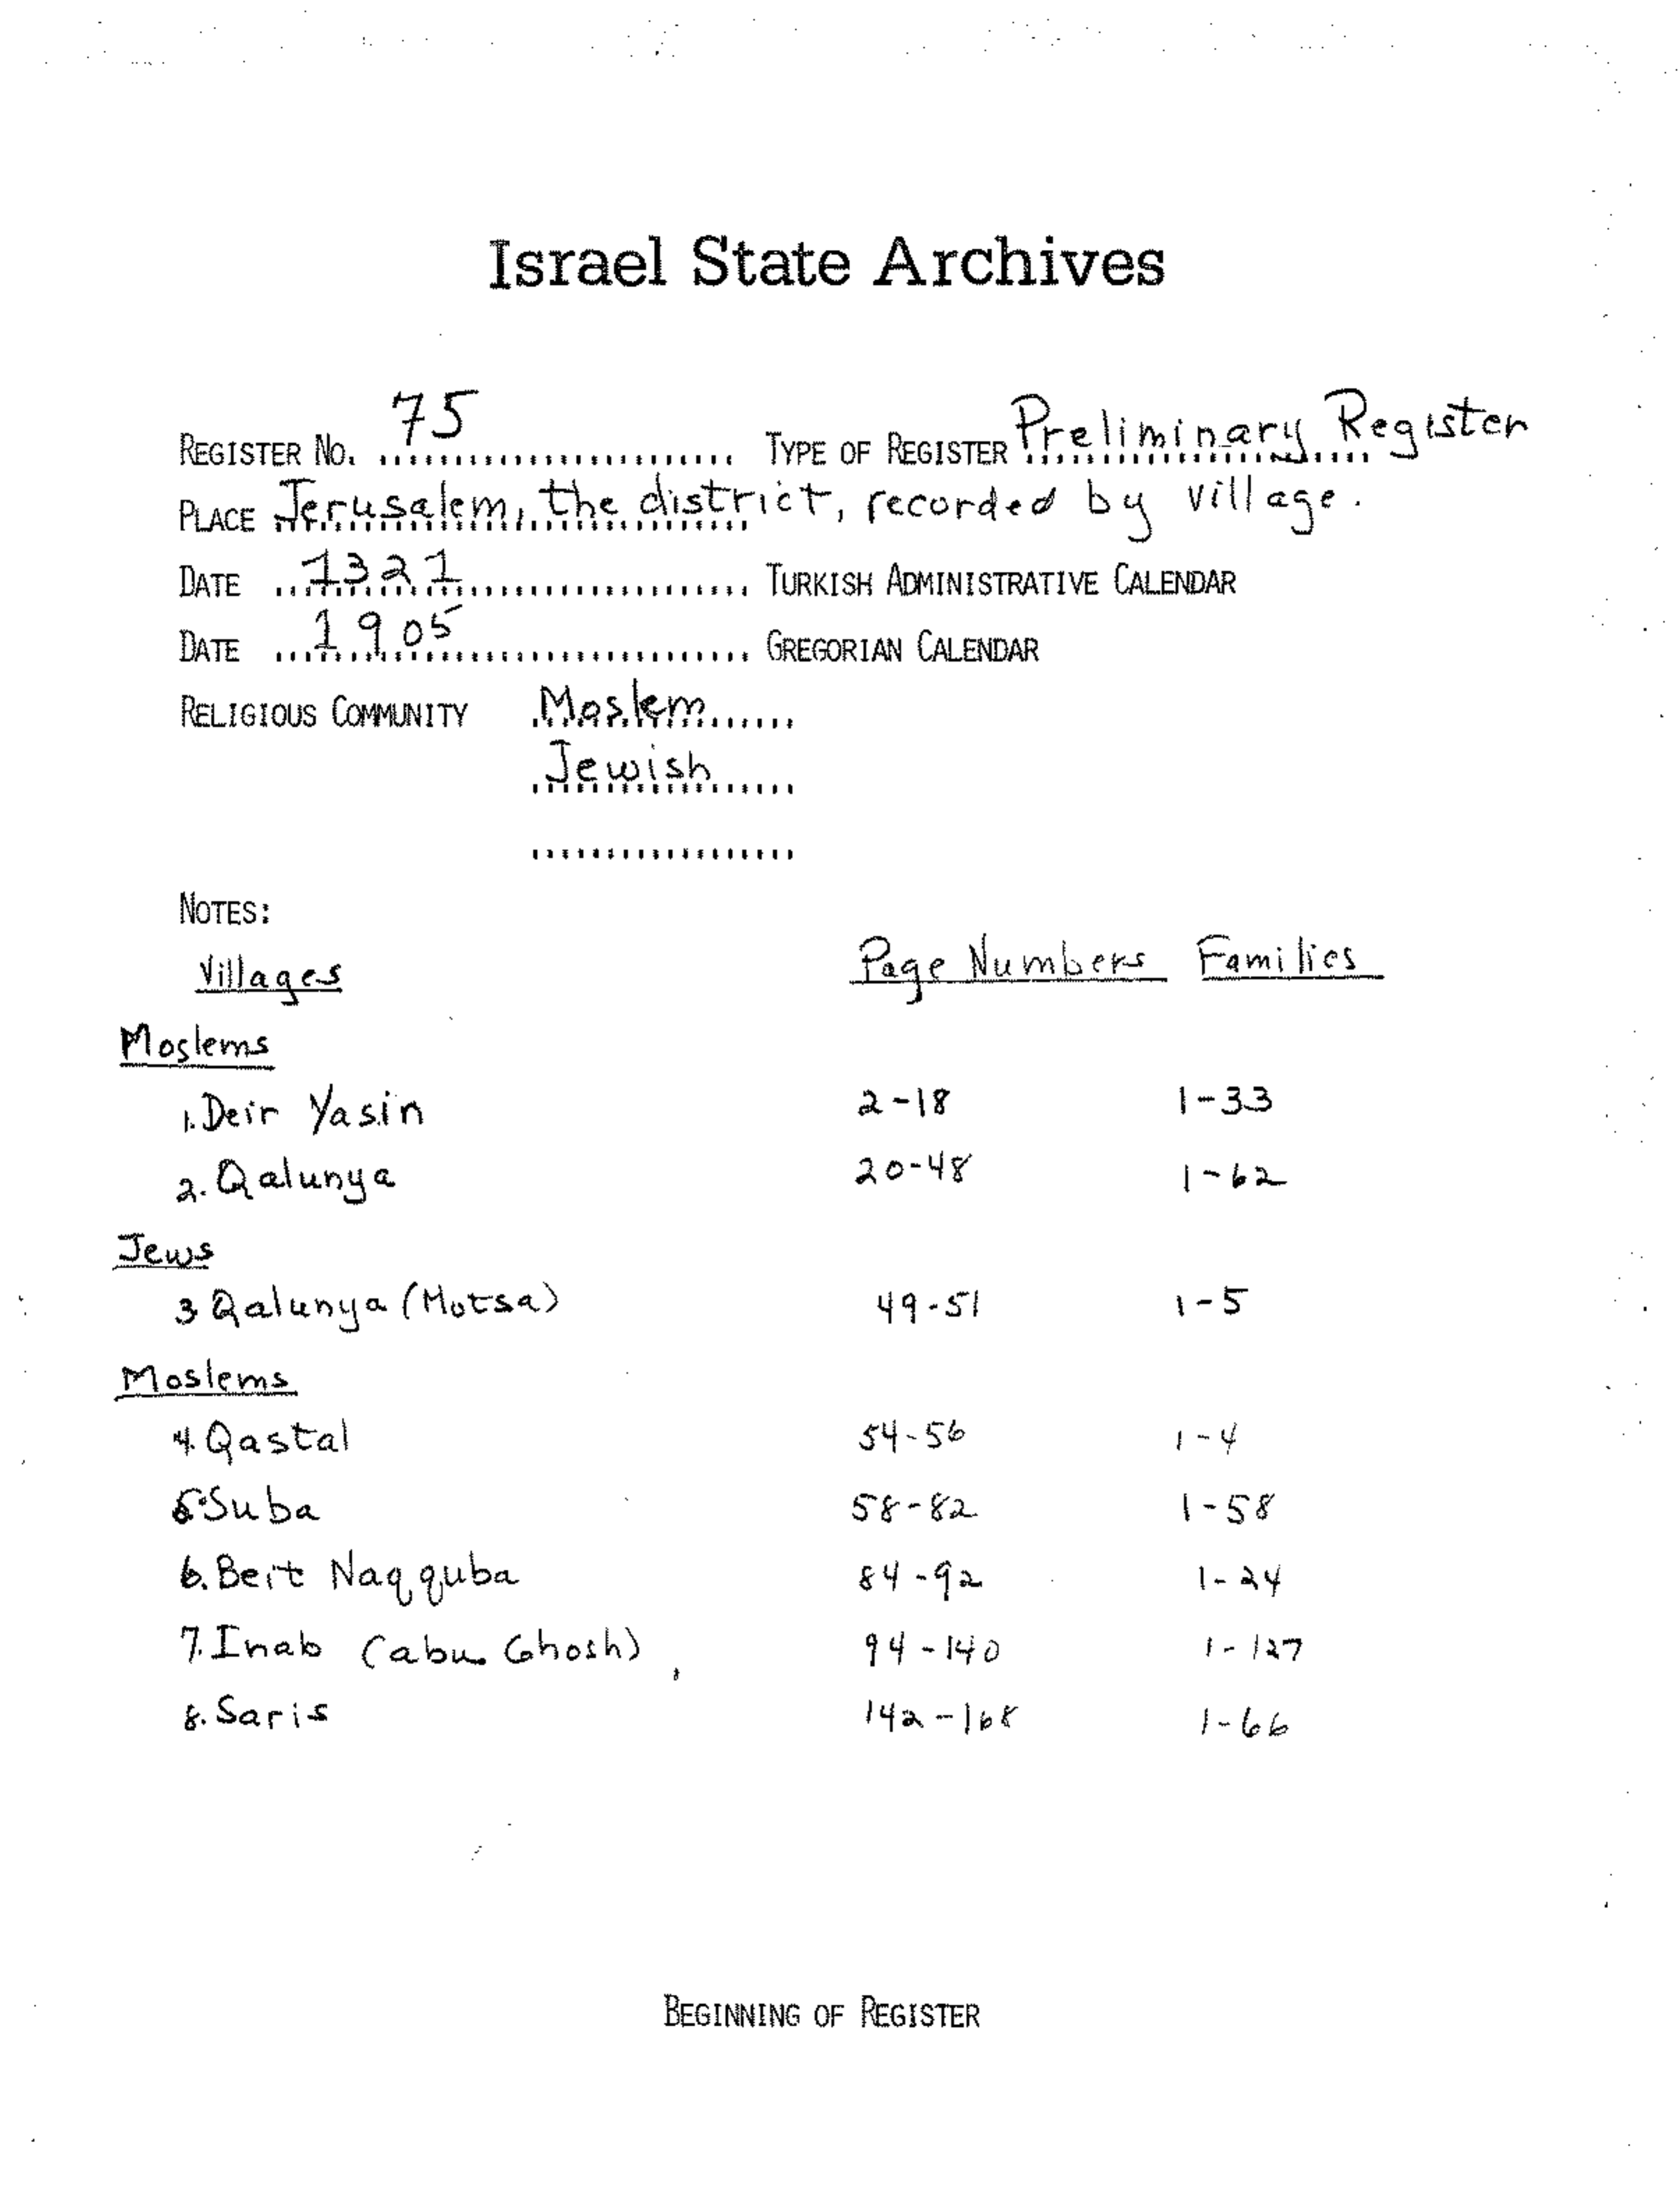 Israel State Archives
REGISTER NO. 75 TYPE OF REGISTER Preliminary Register
PLACE Jerusalem, the district, recorded by village.
DATE 1321 TURKISH ADMINISTRATIVE CALENDAR
DATE 1905 GREGORIAN CALENDAR
RELIGIOUS COMMUNITY Moslem
Jewish
NOTES:
Villages Page Numbers Families
Moslems
1. Deir Yasin 2-18 1-33
2. Qalunya 20-48 1-62
Jews
3 Qalunya (Motsa) 49-51 1-5
Moslems
4. Qastal 54-56 1-4
5. Suba 58-82 1-58
6. Beit Naqquba 84-92 1-24
7. Inab (abu Ghosh) 94-140 1-127
8. Saris 142-168 1-66
BEGINNING OF REGISTER